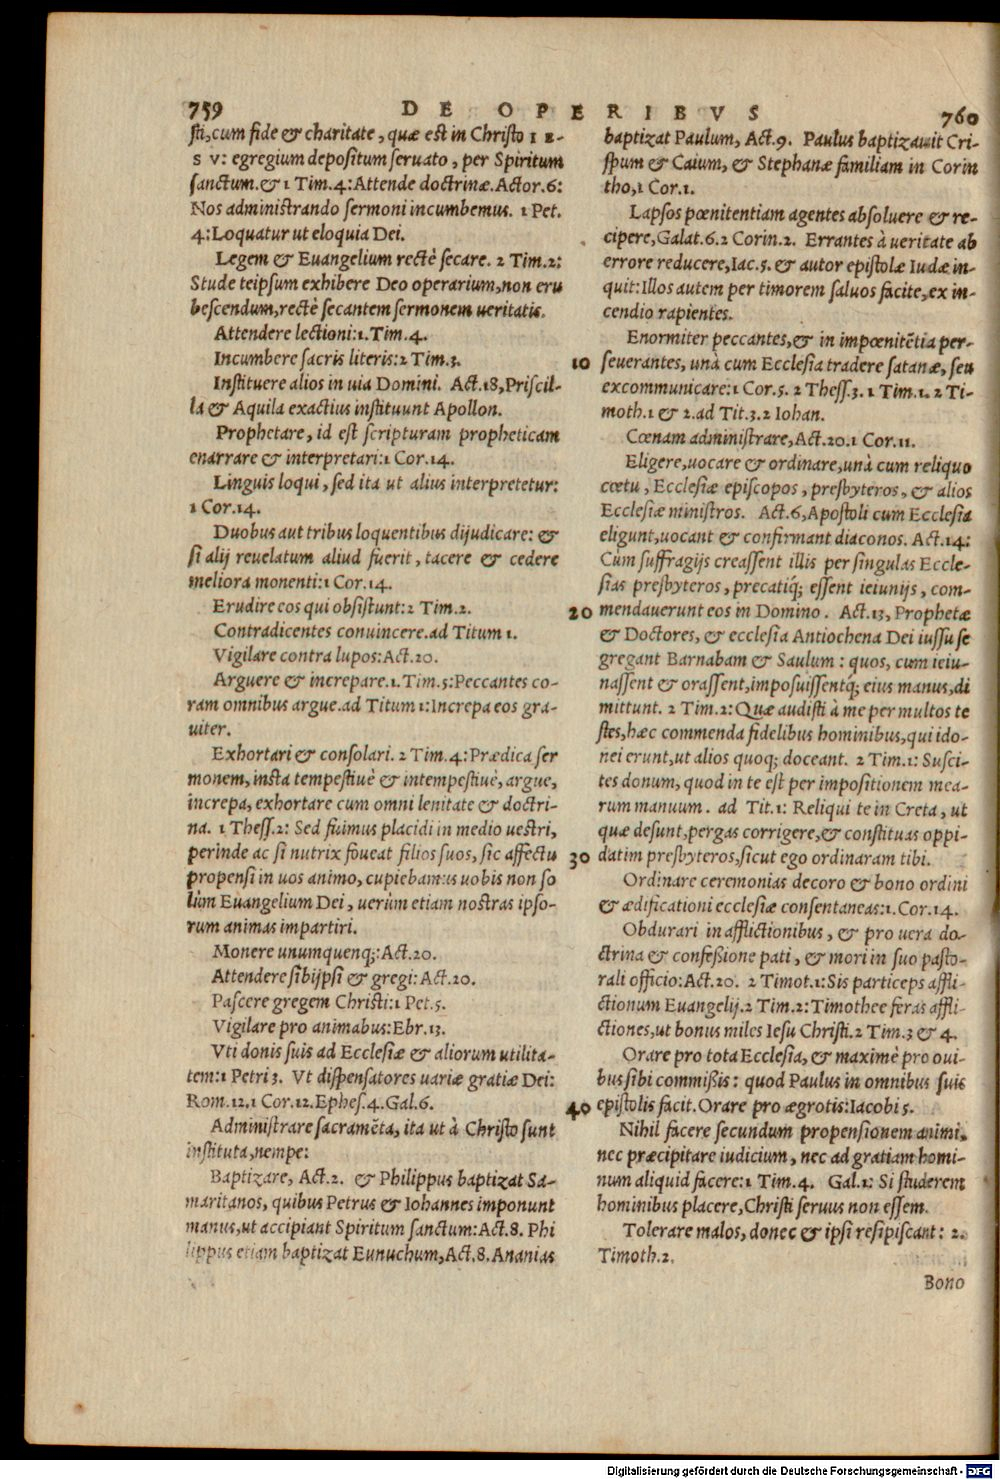 759 DE OPERIBVS 760
sti, cum fide & charitate, quæ est in Christo IE-
SV: egregium depositum seruato, per Spiritum
sanctum. & 1 Tim. 4: Attende doctrinæ. Actor. 6:
Nos administrando sermoni incumbemus. 1 Pet.
4: Loquatur ut eloquia Dei.
Legem & Euangelium rectè secare. 2 Tim. 2:
Stude teipsum exhibere Deo operarium, non eru
bescendum, rectè secantem sermonem ueritatis.
Attendere lectioni: 1. Tim. 4.
Incumbere sacris literis: 2 Tim. 3.
Instituere alios in uia Domini. Act. 18, Priscil-
la & Aquila exactius instituunt Apollon.
Prophetare, id est scripturam propheticam
enarrare & interpretari: 1 Cor. 14.
Linguis loqui, sed ita ut alius interpretetur:
1 Cor. 14.
Duobus aut tribus loquentibus dijudicare: &
si alij reuelatum aliud fuerit, tacere & cedere
meliora monenti: 1 Cor. 14.
Erudire eos qui obsistunt: 2 Tim. 2.
Contradicentes conuincere. ad Titum 1.
Vigilare contra lupos: Act. 20.
Arguere & increpare. 1. Tim. 5: Peccantes co-
ram omnibus argue. ad Titum 1: Increpa eos gra-
uiter.
Exhortari & consolari. 2 Tim. 4: Prædica ser
monem, insta tempestiuè & intempestiuè, argue,
increpa, exhortare cum omni lenitate & doctri-
na. 1 Thess. 2: Sed fuimus placidi in medio uestri,
perinde ac si nutrix foueat filios suos, sic affectu
propensi in uos animo, cupiebamus uobis non so
lùm Euangelium Dei, uerùm etiam nostras ipso-
rum animas impartiri.
Monere unumquenq;: Act. 20.
Attendere sibijpsi & gregi: Act. 20.
Pascere gregem Christi: 1 Pet. 5.
Vigilare pro animabus: Ebr. 13.
Vti donis suis ad Ecclesiæ & aliorum utilita-
tem: 1 Petri 3. Vt dispensatores uariæ gratiæ Dei:
Rom. 12. 1 Cor. 12. Ephes. 4. Gal. 6.
Administrare sacramēta, ita ut à Christo sunt
instituta, nempe:
Baptizare, Act. 2. & Philippus baptizat Sa-
maritanos, quibus Petrus & Iohannes imponunt
manus, ut accipiant Spiritum sanctum: Act. 8. Phi
lippus etiam baptizat Eunuchum, Act. 8. Ananias
baptizat Paulum, Act. 9. Paulus baptizauit Cri-
spum & Caium, & Stephanæ familiam in Corin
tho, 1 Cor. 1.
Lapsos pœnitentiam agentes absoluere & re-
cipere, Galat. 6. 2 Corin. 2. Errantes à ueritate ab
errore reducere, Iac. 5. & autor epistolæ Iudæ in-
quit: Illos autem per timorem saluos facite, ex in-
cendio rapientes.
Enormiter peccantes, & in impœnitētia per-
10 seuerantes, unà cum Ecclesia tradere satanæ, seu
excommunicare: 1 Cor. 5. 2 Thess. 3. 1 Tim. 1. 2 Ti-
moth. 1 & 2. ad Tit. 3. 2 Iohan.
Cœnam administrare, Act. 20. 1 Cor. 11.
Eligere, uocare & ordinare, unà cum reliquo
cœtu, Ecclesiæ episcopos, presbyteros, & alios
Ecclesiæ ministros. Act. 6, Apostoli cum Ecclesia
eligunt, uocant & confirmant diaconos. Act. 14:
Cum suffragijs creassent illis per singulas Eccle-
sias presbyteros, precatiq́; essent ieiunijs, com-
20 mendauerunt eos in Domino. Act. 13, Prophetæ
& Doctores, & ecclesia Antiochena Dei iussu se
gregant Barnabam & Saulum: quos, cum ieiu-
nassent & orassent, imposuissentq́; eius manus, di
mittunt. 2 Tim. 2: Quæ audisti à me per multos te
stes, hæc commenda fidelibus hominibus, qui ido-
nei erunt, ut alios quoq; doceant. 2 Tim. 1: Susci-
tes donum, quod in te est per impositionem mea-
rum manuum. ad Tit. 1: Reliqui te in Creta, ut
quæ desunt, pergas corrigere, & constituas oppi-
30 datim presbyteros, sicut ego ordinaram tibi.
Ordinare ceremonias decoro & bono ordini
& ædificationi ecclesiæ consentaneas: 1. Cor. 14.
Obdurari in afflictionibus, & pro uera do-
ctrina & confeßione pati, & mori in suo pasto-
rali officio: Act. 20. 2 Timot. 1: Sis particeps affli-
ctionum Euangelij. 2 Tim. 2: Timothee feras affli-
ctiones, ut bonus miles Iesu Christi. 2 Tim. 3 & 4.
Orare pro tota Ecclesia, & maximè pro oui-
bus sibi commißis: quod Paulus in omnibus suis
40 epistolis facit. Orare pro ægrotis: Iacobi 5.
Nihil facere secundum propensionem animi,
nec præcipitare iudicium, nec ad gratiam homi-
num aliquid facere: 1 Tim. 4. Gal. 1: Si studerem
hominibus placere, Christi seruus non essem.
Tolerare malos, donec & ipsi resipiscant: 2.
Timoth. 2.
Bono
Digitalisierung gefördert durch die Deutsche Forschungsgemeinschaft - DFG